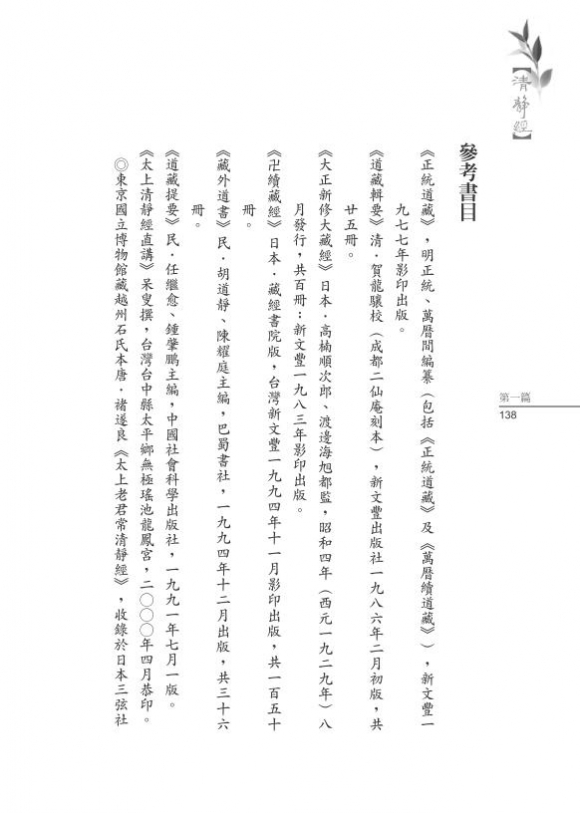 【清靜經】
第一篇
138
參考書目
《正統道藏》，明正統、萬曆間編纂（包括《正統道藏》及《萬曆續道藏》），新文豐一
九七七年影印出版。
《道藏輯要》清．賀龍驤校（成都二仙庵刻本），新文豐出版社一九八六年二月初版，共
廿五冊。
《大正新修大藏經》日本．高楠順次郎、渡邊海旭都監，昭和四年（西元一九二九年）八
月發行，共百冊：新文豐一九八三年影印出版。
《卍續藏經》日本．藏經書院版，台灣新文豐一九九四年十一月影印出版，共一百五十
冊。
《藏外道書》民．胡道靜、陳耀庭主編，巴蜀書社，一九九四年十二月出版，共三十六
冊。
《道藏提要》民．任繼愈、鍾肇鵬主編，中國社會科學出版社，一九九一年七月一版。
《太上清靜經直講》呆叟撰，台灣台中縣太平鄉無極瑤池龍鳳宮，二〇〇〇年四月恭印。
◎東京國立博物館藏越州石氏本唐．褚遂良《太上老君常清靜經》，收錄於日本三弦社